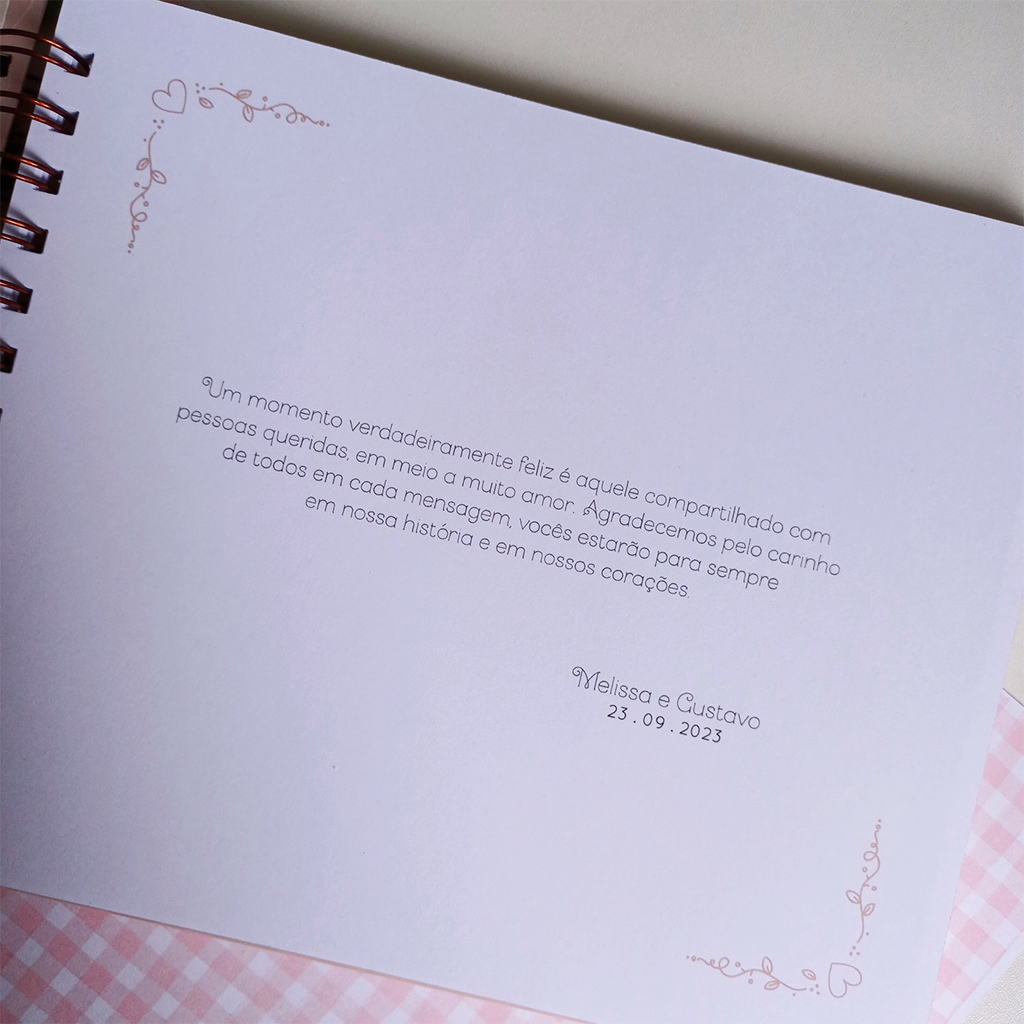 Um momento verdadeiramente feliz é aquele compartilhado com
pessoas queridas, em meio a muito amor. Agradecemos pelo carinho
de todos em cada mensagem, vocês estarão para sempre
em nossa história e em nossos corações.
Melissa e Gustavo
23.09.2023